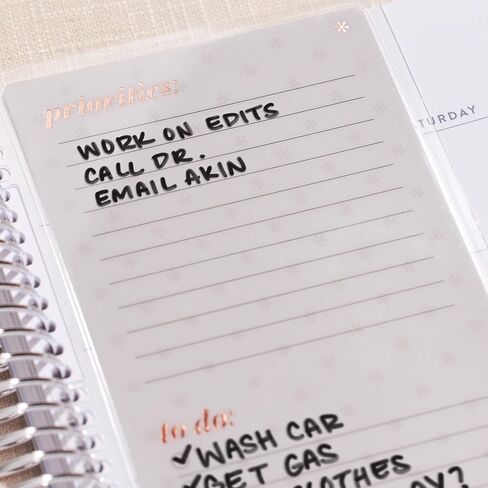 priorities:
TURDAY
WORK ON EDITS
CALL DR.
EMAIL AKIN
to do:
✓WASH CAR
✓GET GAS
CLOTHES
AY?